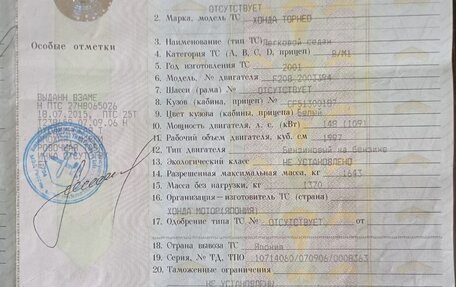 ОТСУТСТВУЕТ
2. Марка, модель ТС ХОНДА ТОРНЕО
Особые отметки
3. Наименование (тип ТС) Легковой седан
4. Категория ТС (А, В, С, D, прицеп) B/M1
5. Год изготовления ТС 2001
6. Модель, № двигателя F20B-
7. Шасси (рама) № ОТСУТСТВУЕТ
8. Кузов (кабина, прицеп) №
9. Цвет кузова (кабины, прицепа) Белый
10. Мощность двигателя, л. с. (кВт) 148 (109)
11. Рабочий объем двигателя, куб. см 1997
12. Тип двигателя Бензиновый на Бензине
13. Экологический класс НЕ УСТАНОВЛЕНО
14. Разрешенная максимальная масса, кг 1643
15. Масса без нагрузки, кг 1370
16. Организация—изготовитель ТС (страна)
ХОНДА МОТОР(ЯПОНИЯ)
17. Одобрение типа ТС № ОТСУТСТВУЕТ
18. Страна вывоза ТС Япония
19. Серия, № ТД, ТПО 10714060/070906/0008363
20. Таможенные ограничения
НЕ УСТАНОВЛЕНЫ
ВЫДАН ВЗАМЕ
Н ПТС 27НВ065026
18.07.2015, ПТС 25Т